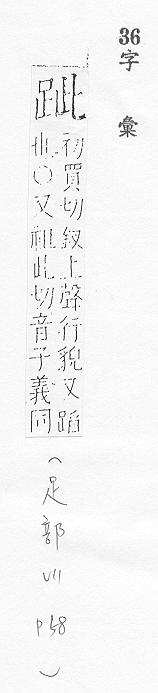 36
字彙
跐
初買切釵上聲行貌又蹈
也○又租此切音子義同
(足部 VII p58)